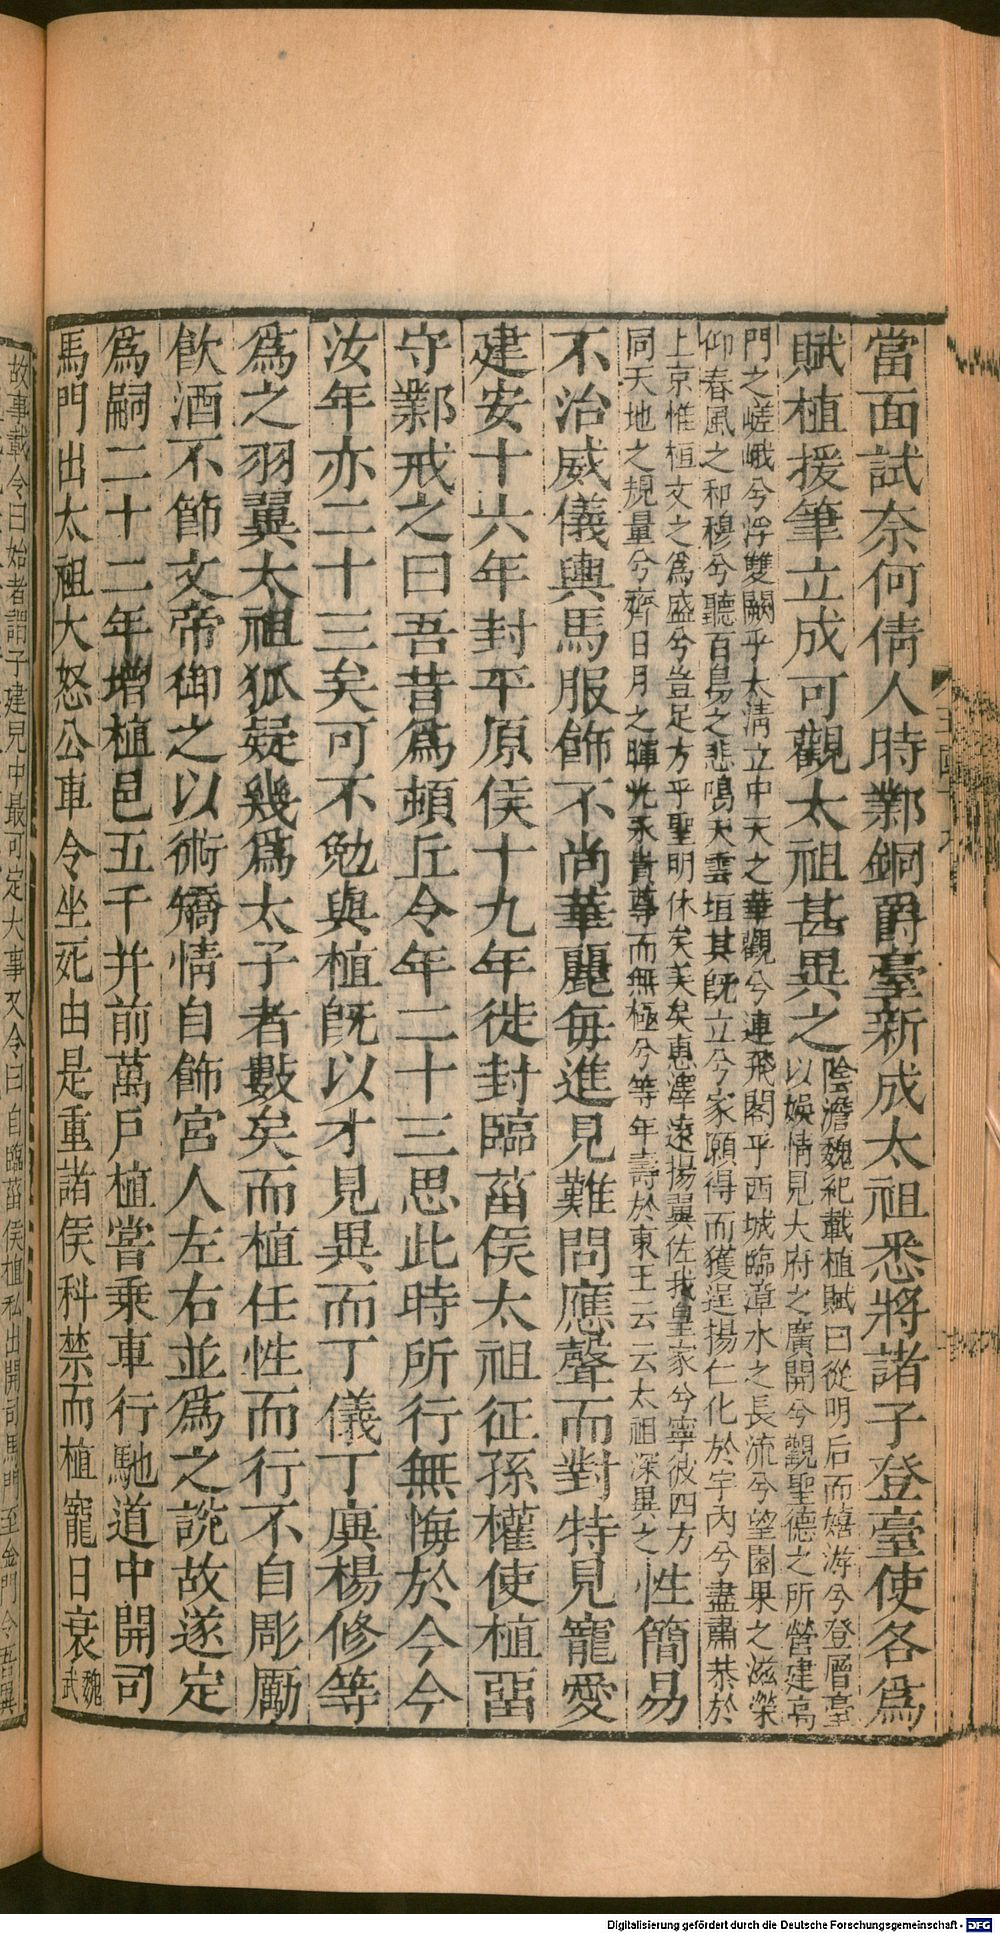 當面試奈何倩人時鄴銅爵臺新成太祖悉將諸子登臺使各爲
賦植援筆立成可觀太祖甚異之
陰澹魏紀載植賦曰從明后而嬉游兮登層臺
以娛情見太府之廣開兮觀聖德之所營建高
門之嵯峨兮浮雙闕乎太淸立中天之華觀兮連飛閣乎西城臨漳水之長流兮望園果之滋榮
仰春風之和穆兮聽百鳥之悲鳴天雲垣其旣立兮家願得而獲逞揚仁化於宇內兮盡肅恭於
上京惟桓文之爲盛兮豈足方乎聖明休矣美矣惠澤遠揚翼佐我皇家兮寧彼四方
同天地之規量兮齊日月之暉光永貴尊而無極兮等年壽於東王云云太祖深異之
性簡易
不治威儀輿馬服飾不尚華麗每進見難問應聲而對特見寵愛
建安十六年封平原侯十九年徙封臨菑侯太祖征孫權使植留
守鄴戒之曰吾昔爲頓丘令年二十三思此時所行無悔於今今
汝年亦二十三矣可不勉與植旣以才見異而丁儀丁廙楊修等
爲之羽翼太祖狐疑幾爲太子者數矣而植任性而行不自彫勵
飲酒不節文帝御之以術矯情自飾宮人左右並爲之說故遂定
爲嗣二十二年增植邑五千并前萬戶植嘗乘車行馳道中開司
馬門出太祖大怒公車令坐死由是重諸侯科禁而植寵日衰
魏
武
故事載令曰始者謂子建兒中最可定大事又令曰自臨菑侯植私出開司馬門至金門令吾異
Digitalisierung gefördert durch die Deutsche Forschungsgemeinschaft - DFG